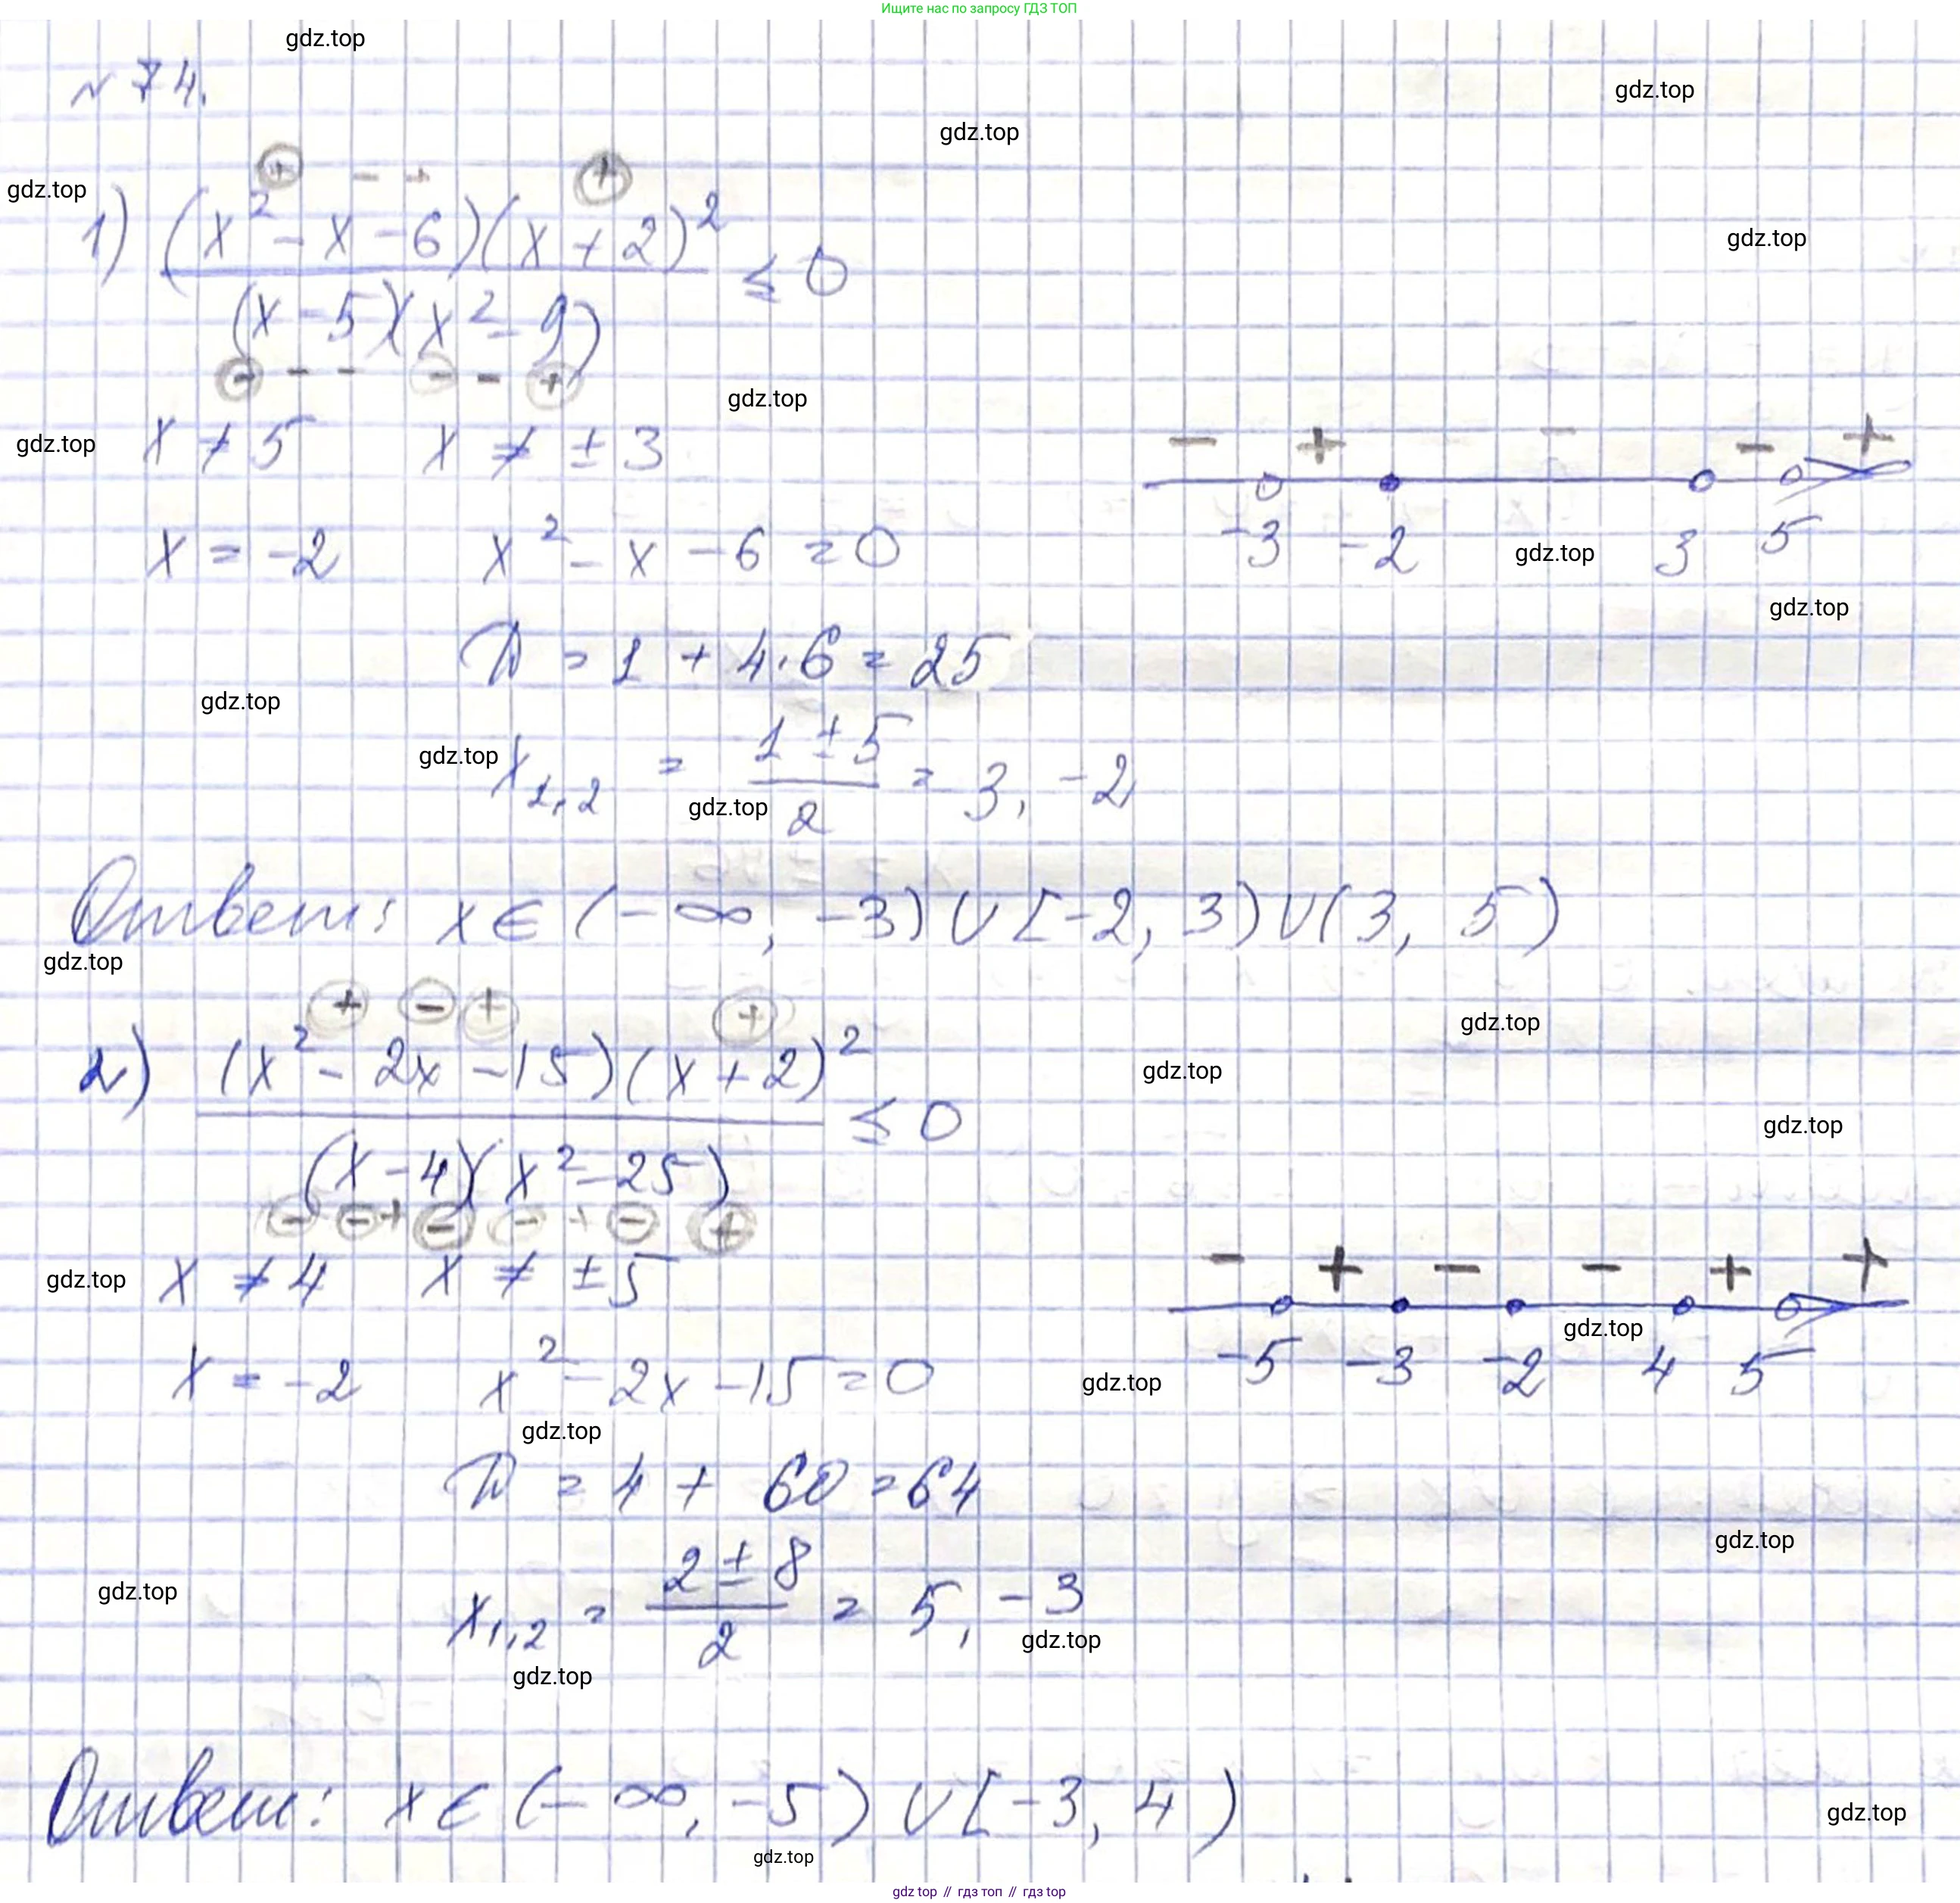 Ищите нас по запросу ГДЗ ТОП
gdz.top
№ 74.
gdz.top
gdz.top
gdz.top
+ - + +
1) (x² - x - 6)(x + 2)² / (x - 5)(x² - 9) ≤ 0
gdz.top
- - - - - +
gdz.top
gdz.top
x ≠ 5 x ≠ ± 3
- + - - +
-3 -2 3 5
gdz.top
x = -2 x² - x - 6 = 0
gdz.top
D = 1 + 4·6 = 25
gdz.top
gdz.top
x1,2 = (1 ± 5) / 2 = 3, -2
gdz.top
Ответ: x ∈ (-∞, -3) ∪ [-2, 3) ∪ (3, 5)
gdz.top
+ - + +
gdz.top
2) (x² - 2x - 15)(x + 2)² / (x - 4)(x² - 25) ≤ 0
gdz.top
gdz.top
- - + - - + - +
gdz.top
x ≠ 4 x ≠ ± 5
- + - - + +
-5 -3 -2 4 5
gdz.top
gdz.top
x = -2 x² - 2x - 15 = 0
gdz.top
D = 4 + 60 = 64
gdz.top
gdz.top
x1,2 = (2 ± 8) / 2 = 5, -3
gdz.top
gdz.top
Ответ: x ∈ (-∞, -5) ∪ [-3, 4)
gdz.top
gdz.top
gdz top // гдз топ // гдз top